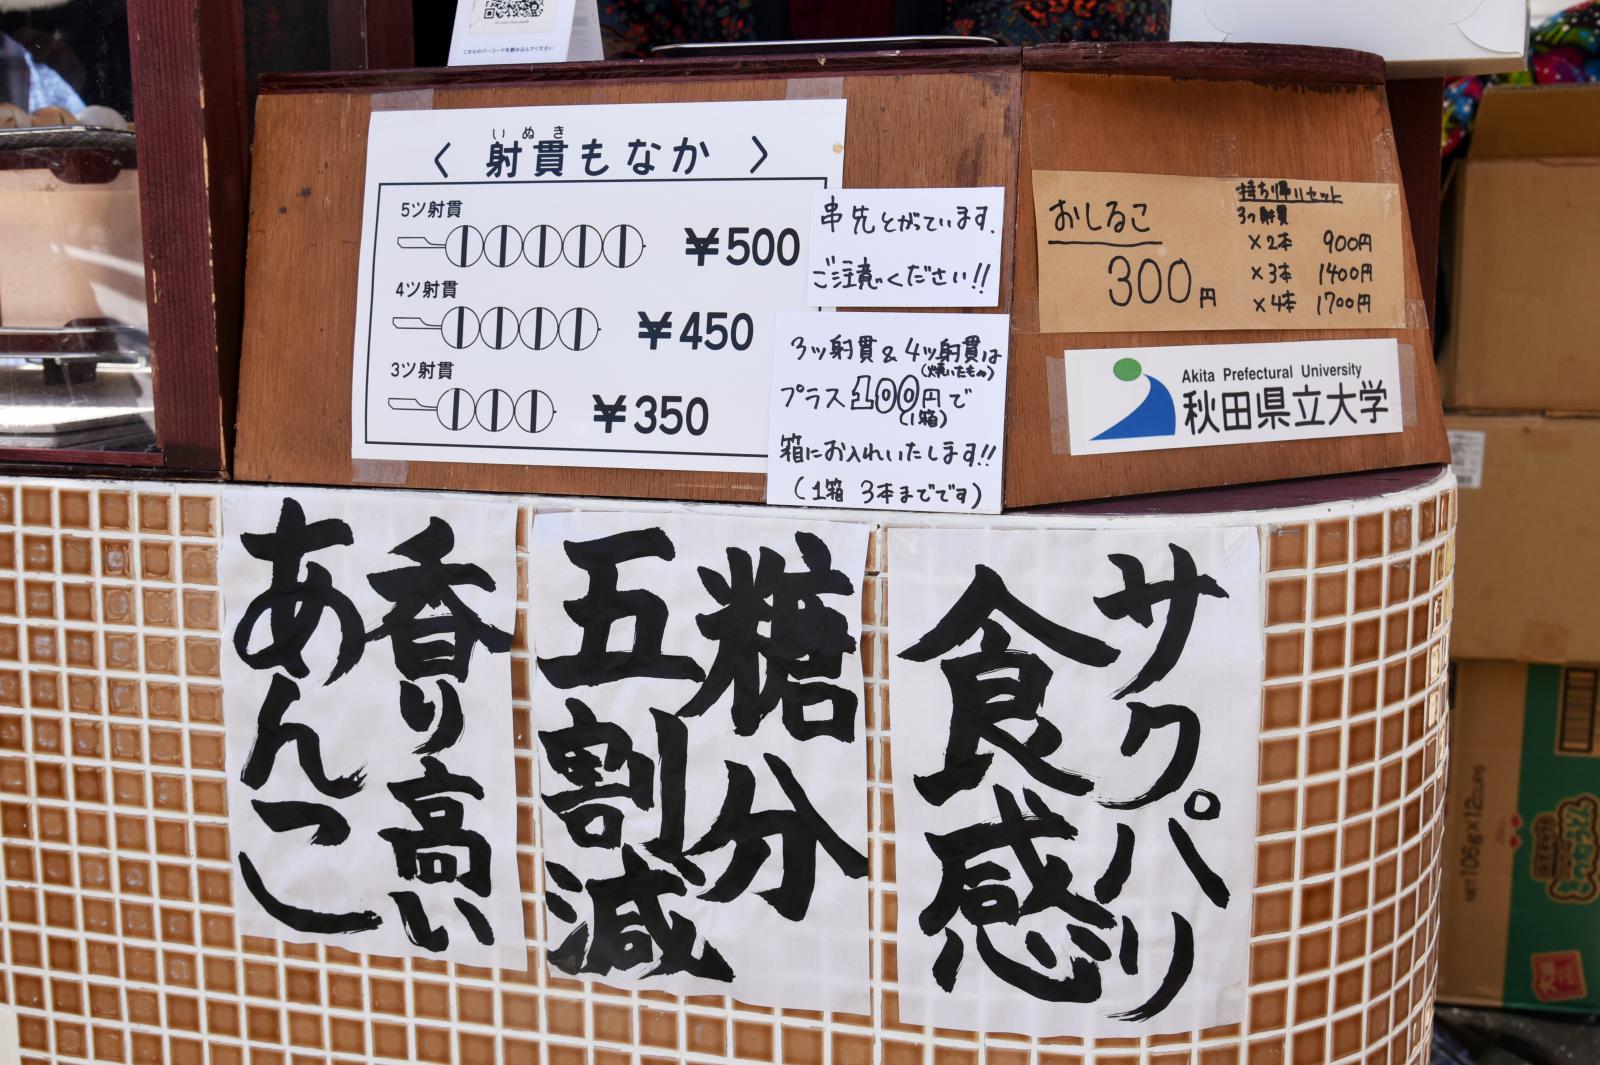 こちらのバーコードを読み込んでください
いぬき
〈 射貫もなか 〉
5ツ射貫
¥500
4ツ射貫
¥450
3ツ射貫
¥350
串先とがっています.
ご注意ください!!
3ッ射貫&4ッ射貫は
(焼いたもの)
プラス100円で
(1箱)
箱にお入れいたします!!
(1箱 3本までです)
おしるこ
300円
持ち帰りセット
3っ射貫
×2本 900円
×3本 1400円
×4本 1700円
Akita Prefectural University
秋田県立大学
サクパリ
食感
糖分
五割減
香り高い
あんこ
NET 106g×12CUPS